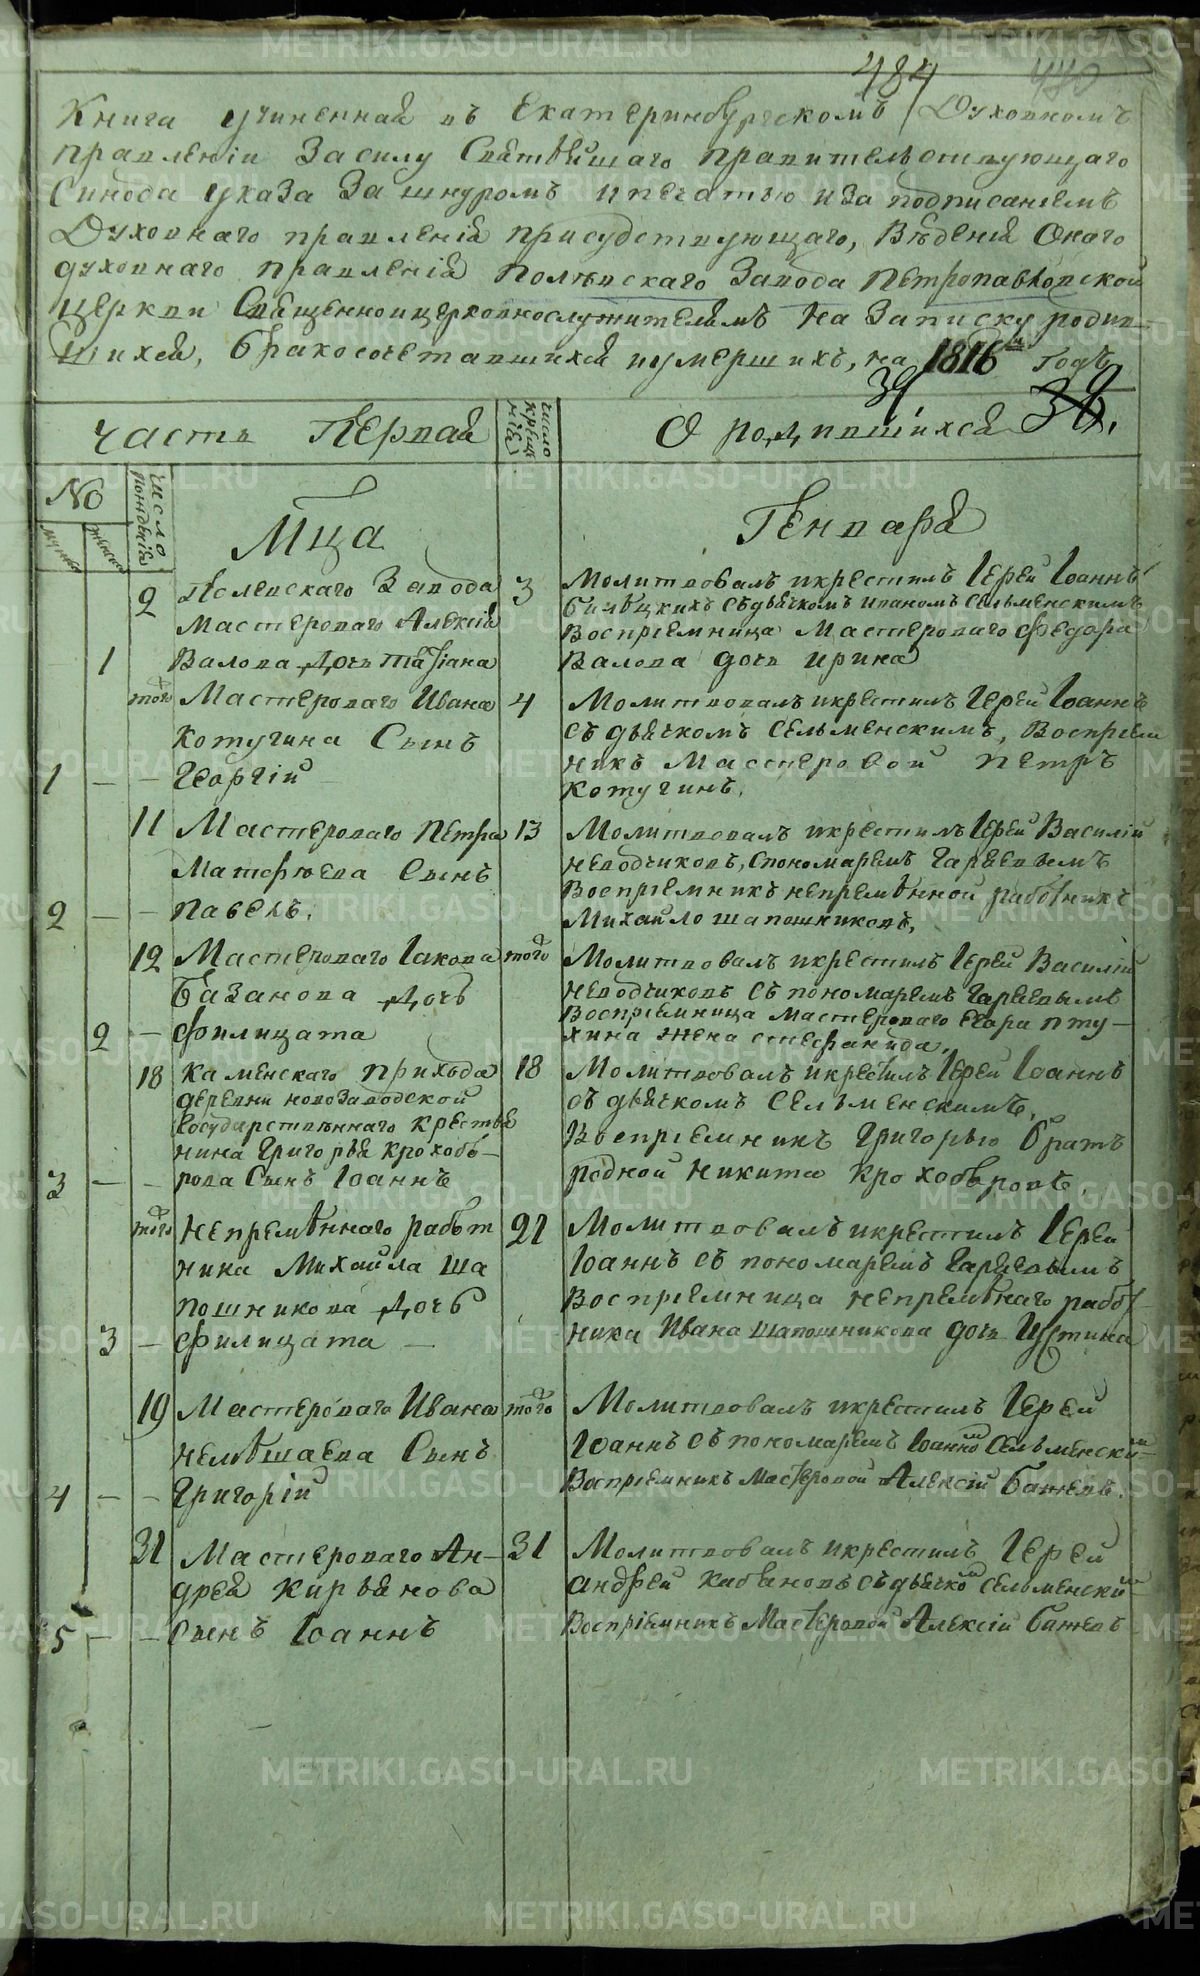 484 440
Книга учиненная въ Екатеринбургскомъ Духовномъ
правленіи За силу Святѣйшаго правительствующаго
Синода указа За шнуромъ и печатью и за подписаніемъ
Духовнаго правленія присудствующаго, Вѣденія Онаго
духовнаго правленія полевскаго Завода Петропавловской
церкви Священноцерковнослужителямъ На Записку родив-
шихся, бракосочетавшихся и умершихъ, на 1816й годъ
39
часть Первая
число крещенія
О родившихся
No
мужеска
женска
число рожденія
Мца
Генваря
2 Полевскаго Завода
Мастероваго Алексія
1 Валова Дочь Татіана
3 Молитвовалъ и крестилъ Іерей Іоаннъ
съ дьячкомъ иваномъ сельменскимъ
Воспріемница Мастероваго Федора
Валова дочь ирина
того Мастероваго Ивана
Котугина Сынъ
1 — — Георгій —
4 Молитвовалъ и крестилъ Іерей Іоаннъ
съ дьячкомъ сельменскимъ, Воспріем
никъ Мастеровой петръ
котугинъ.
11 Мастероваго Петра
Матфѣева Сынъ
2 — — павелъ.
13 Молитвовалъ и крестилъ Іерей Василій
неводчиковъ, с пономаремъ гаряевымъ
Воспріемникъ непремѣнной работникъ
Михайло шапошниковъ,
12 Мастероваго Іакова
базанова Дочь
2 — филицата
того Молитвовалъ и крестилъ Іерей Василій
неводчиковъ съ пономаремъ гаряевымъ
Воспріемница мастероваго егора пту-
хина жена стефанида,
18 каменскаго прихода
деревни новозаводской
государственнаго крестья
нина Григорья крохобо-
3 — — рова Сынъ Іоаннъ
18 Молитвовалъ и крестилъ Іерей Іоаннъ
съ дьячкомъ сельменскимъ,
Воспріемникъ Григорью братъ
родной никита крохоборовъ,
того непремѣннаго работ
ника Михайла ша
пошникова Дочь
3 — филицата —
21 Молитвовалъ и крестилъ Іерей
Іоаннъ съ пономаремъ гаряевымъ
Воспріемница непремѣнаго работ
ника Ивана шапошникова дочь Устина
19 Мастероваго Ивана
немѣшаева Сынъ
4 — — Григорій
того Молитвовалъ и крестилъ Іерей
Іоаннъ съ пономаремъ Іоанномъ Сельменским
Воспріемникъ Мастеровой Алексій бажевъ.
31 Мастероваго Ан-
дрея кирьянова
5 — — Сынъ Іоаннъ
31 Молитвовалъ и крестилъ Іерей
андрей кабановъ съ дьячком сельменским
Воспріемникъ Мастеровой Алексій бажевъ